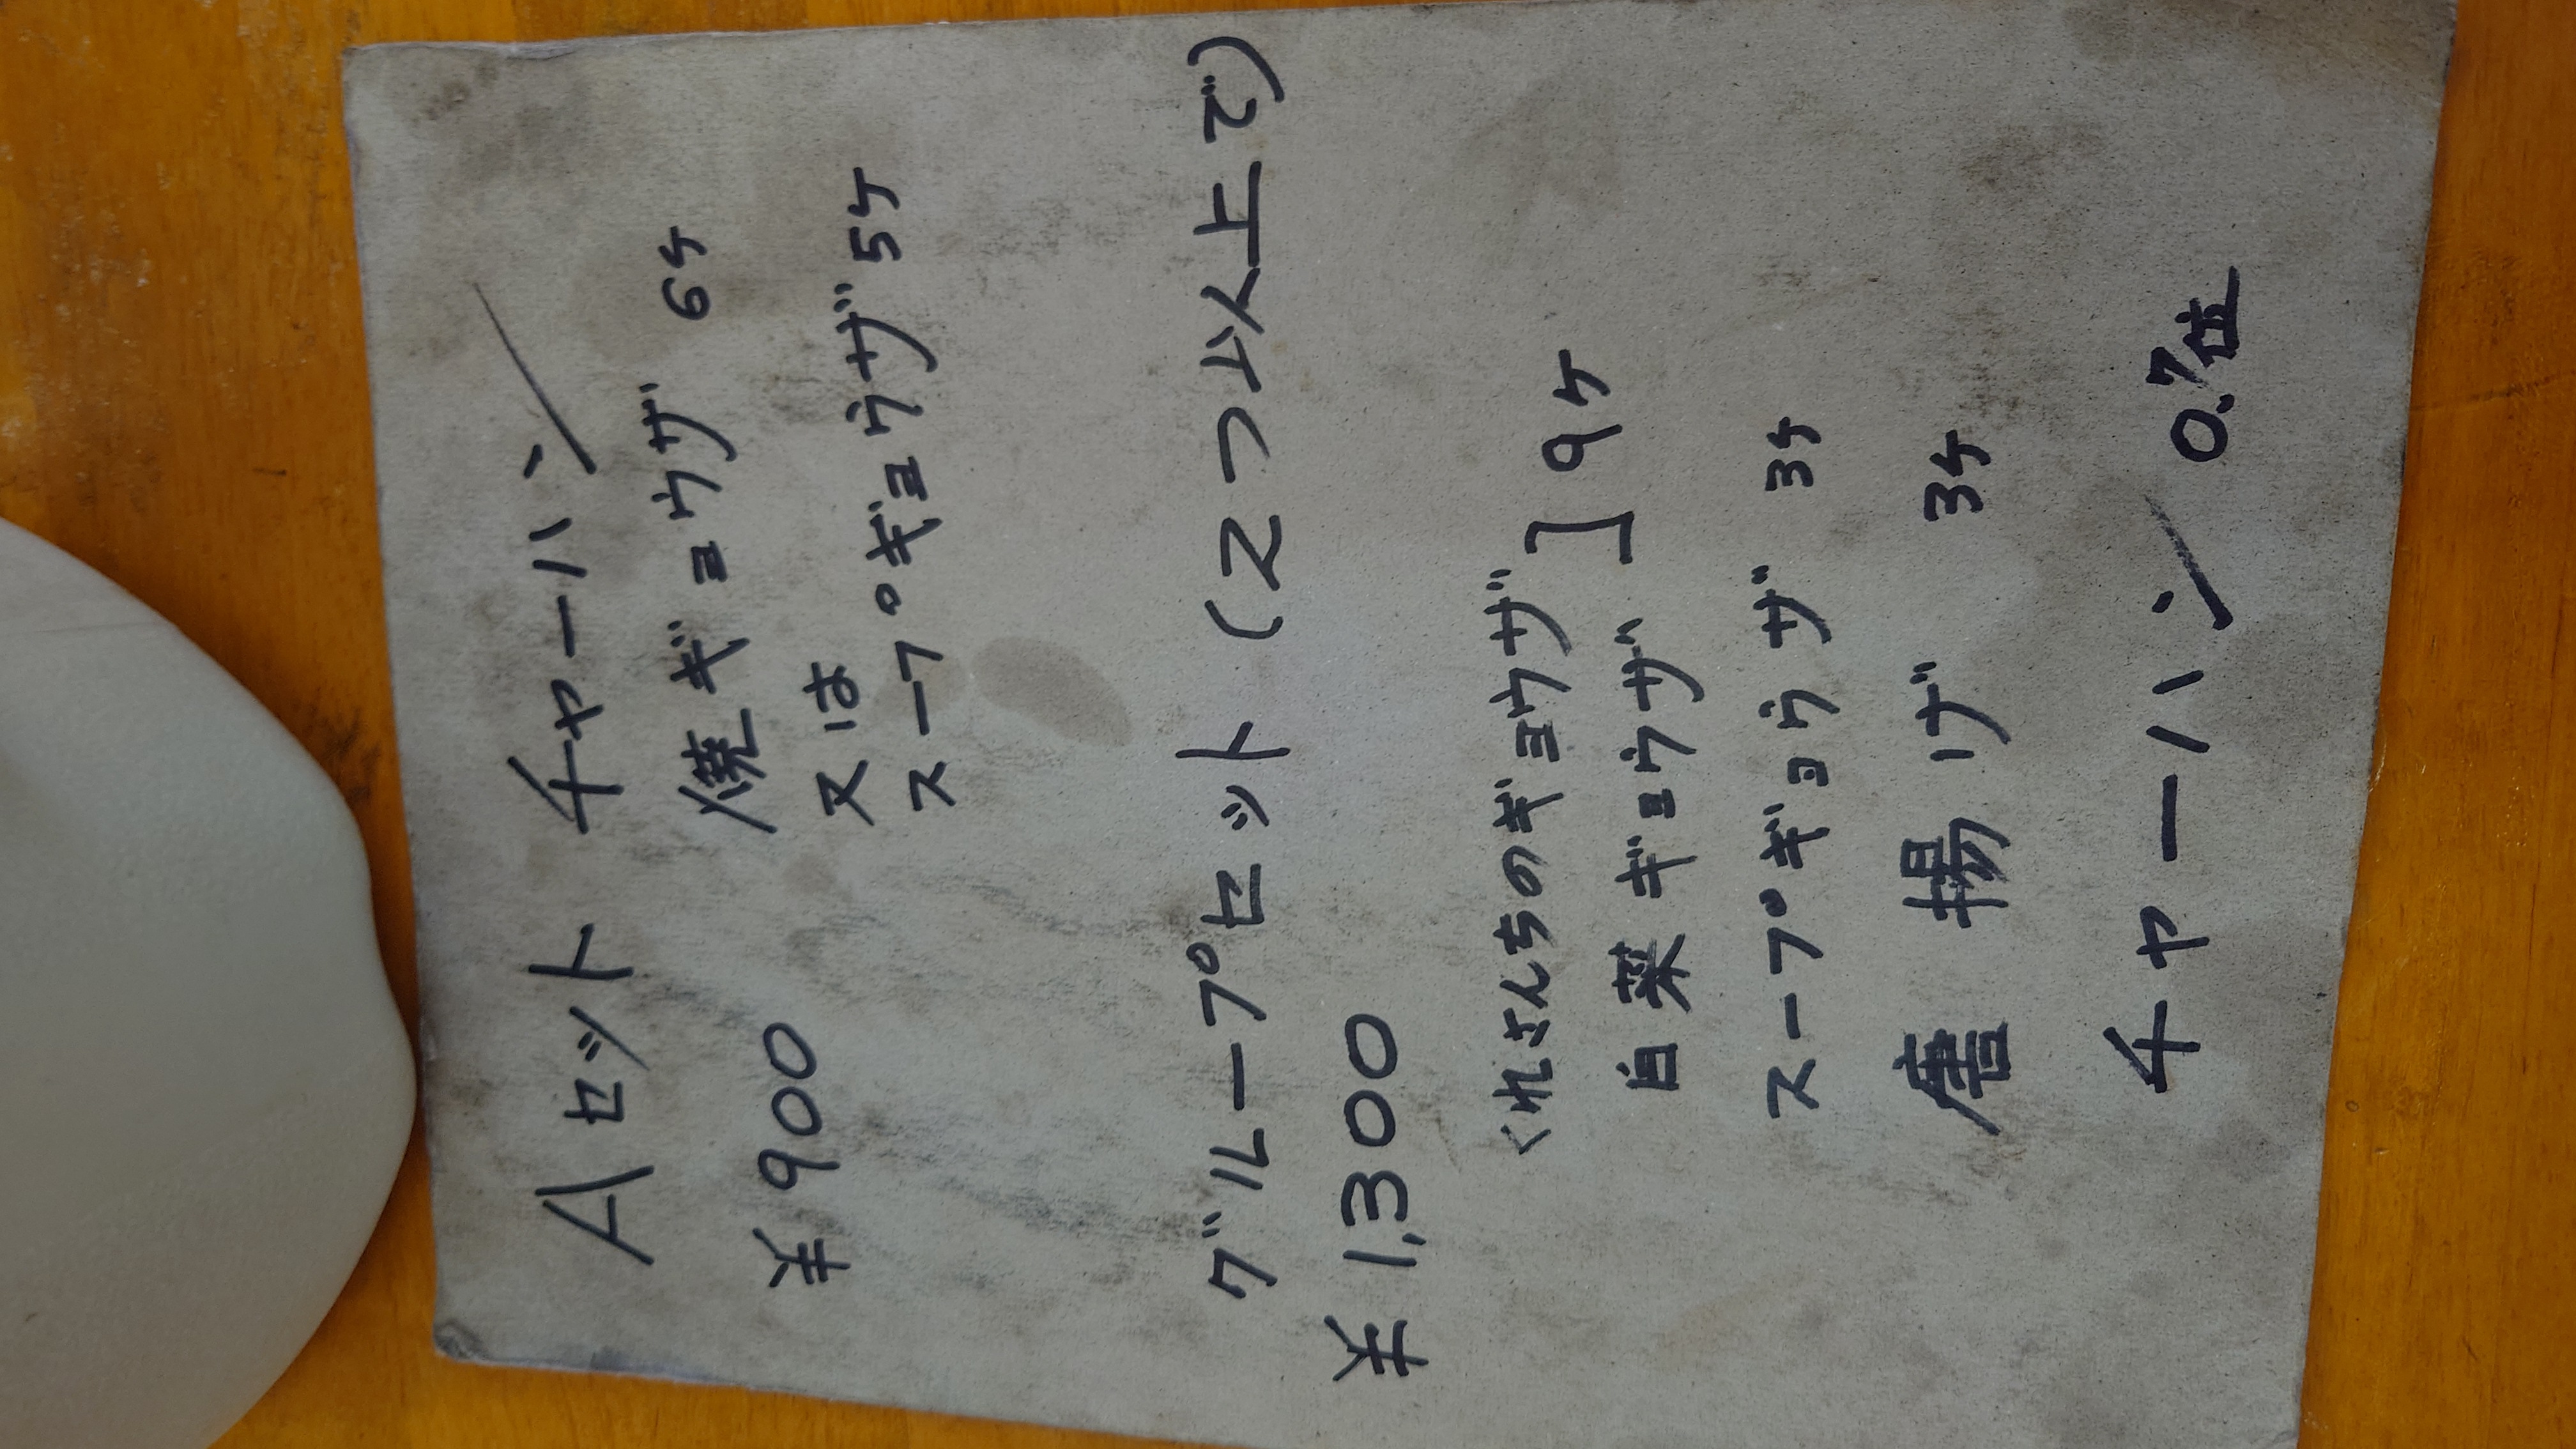 Aセット チャーハン
¥900 焼ギョウザ 6ケ
又は
スープギョウザ 5ケ
グループセット (2つ以上で)
¥1,300
くれよんちのギョウザ ] 9ケ
白菜ギョウザ
スープギョウザ 3ケ
唐揚げ 3ケ
チャーハン 0.7位